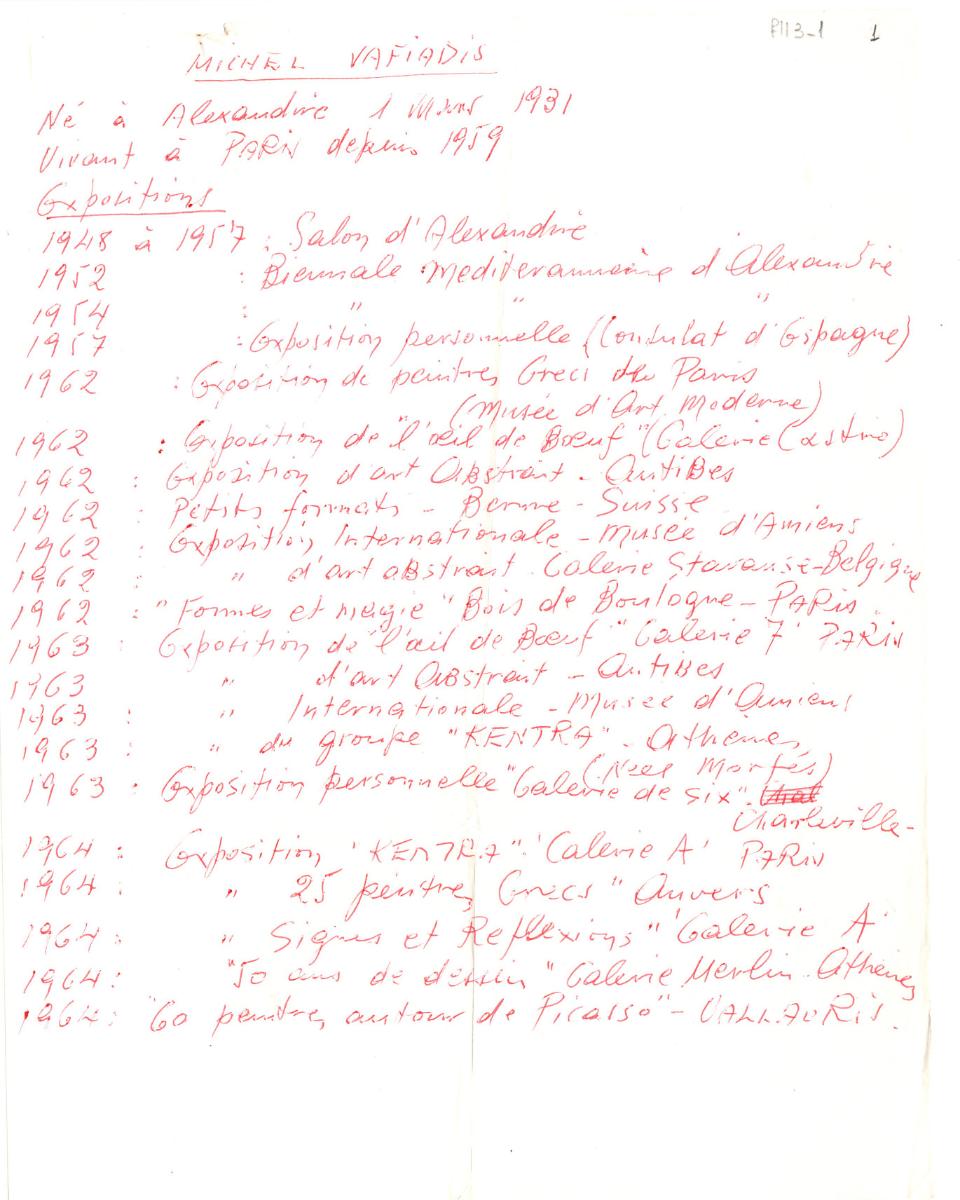 P113-1 1
MICHEL VAFIADIS
Né à Alexandrie 1 Mars 1931
Vivant à PARIS depuis 1959
Expositions
1948 à 1957 : Salon d'Alexandrie
1952 : Biennale Mediterannéene d'Alexandrie
1954 : " " "
1957 : Exposition personnelle (Consulat d'Espagne)
1962 : Exposition de peintres Grecs de Paris
(Musée d'Art Moderne)
1962 : Exposition de "l'œil de Bœuf" (Galerie
1962 : Exposition d'art Abstrait - Antibes
1962 : Petits formats - Berne - Suisse
1962 : Exposition Internationale - Musée d'Amiens
1962 : " d'art abstrait. Galerie - Belgique
1962 : "Formes et magie" Bois de Boulogne - PARIS.
1963 : Exposition de l'œil de Bœuf" Galerie 7' PARIS
1963 " d'art Abstrait - Antibes
1963 : " Internationale - Musée d'Amiens
1963 : " du groupe "KENTRA" - Athènes
1963 : Exposition personnelle "Galerie de six".
Charleville-
1964 : Exposition 'KENTRA" 'Galerie A' PARIS
1964 : " 25 peintres Grecs" Anvers
1964 : " Signes et Reflexions" 'Galerie A'
1964 : "50 ans de dessin" Galerie Merlin. Athènes
1964 : "60 peintres autour de Picasso" - VALLAURIS.